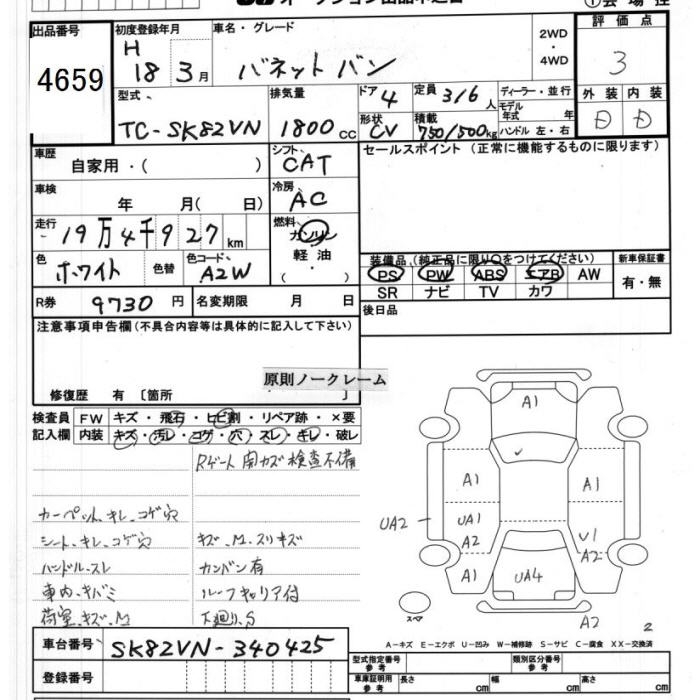 出品番号
4659
初度登録年月
H
18 3月
車名・グレード
バネット バン
2WD
・
4WD
評価点
3
型式
TC-SK82VN
排気量
1800 CC
ドア 4
形状 CV
定員 3/6 人
積載 750/500 kg
ディーラー・並行
モデル年式 年
ハンドル 左・右
外装 内装
D D
車歴
自家用・( )
シフト
CAT
セールスポイント (正常に機能するものに限ります)
車検
年 月( 日)
冷房
AC
走行
19万4千927km
燃料
ガソリン
軽油
( )
色
ホワイト
色替
色コード
A2W
装備品(純正品に限り○をつけてください)
PS PW ABS エアB AW
SR ナビ TV カワ
新車保証書
有・無
R券 9730円
名変期限 月 日
後日品
注意事項申告欄(不具合内容等は具体的に記入して下さい)
原則ノークレーム
修復歴 有 〔箇所 〕
検査員
記入欄
FW キズ・飛石・ヒビ割・リペア跡・×要
内装 キズ・汚レ・コゲ・穴・スレ・キレ・破レ
Rゲート 開カズ 検査不備
カーペット、キレ、コゲ穴
シート、キレ、コゲ穴
ハンドル、スレ
車内、キバミ
荷室、キズ、M
キズ、M、スリキズ
カンバン有
ルーフキャリア付
下廻り、S
A1
A1
A1
UA1
A2
UA2
U1
A2
A1
UA4
A2
スペア
2
A-キズ E-エクボ U-凹み W-補修跡 S-サビ C-腐食 XX-交換済
車台番号 SK82VN-340425
登録番号
型式指定番号
参考
類別区分番号
参考
車庫証明用
参考
長さ cm
幅 cm
高さ cm